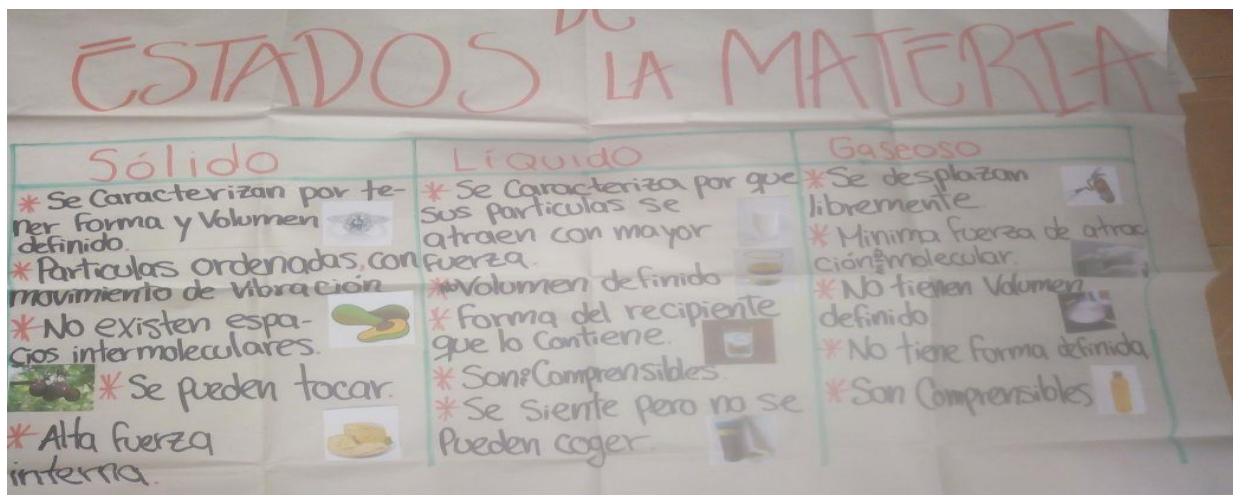 ESTADOS DE LA MATERIA
Sólido
* Se Caracterizan por te-
ner Forma y Volumen
definido.
* Particulas ordenadas, con
movimiento de Vibración
* No existen espa-
cios intermoleculares.
* Se pueden tocar.
* Alta fuerza
interna.
Líquido
* Se Caracteriza por que
sus particulas se
atraen con mayor
fuerza.
* Volumen definido
* Forma del recipiente
que lo Contiene.
* Son Comprensibles
* Se Siente pero no se
Pueden coger.
Gaseoso
* Se desplazan
libremente
* Minima fuerza de atrac
ción molecular.
* No tienen Volumen
definido
* No tiene forma definida
* Son Comprensibles